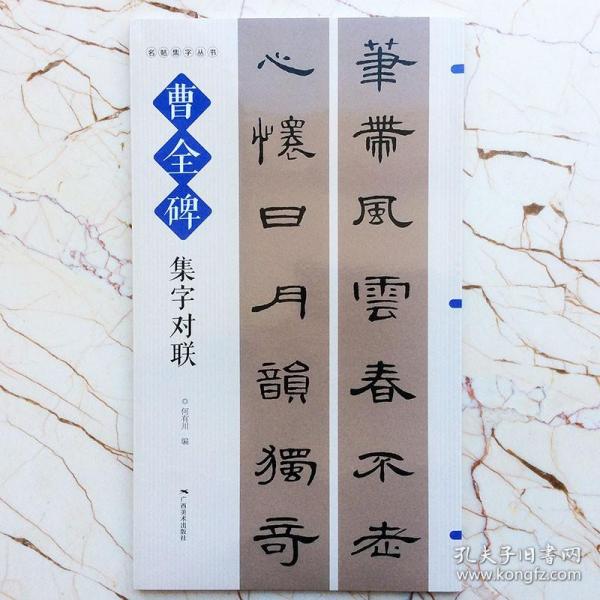 名帖集字丛书
曹全碑
集字对联
◎何有川 编
广西美术出版社
筆帶風雲春不老
心懷日月韻獨奇
孔夫子旧书网
www.kongfz.com